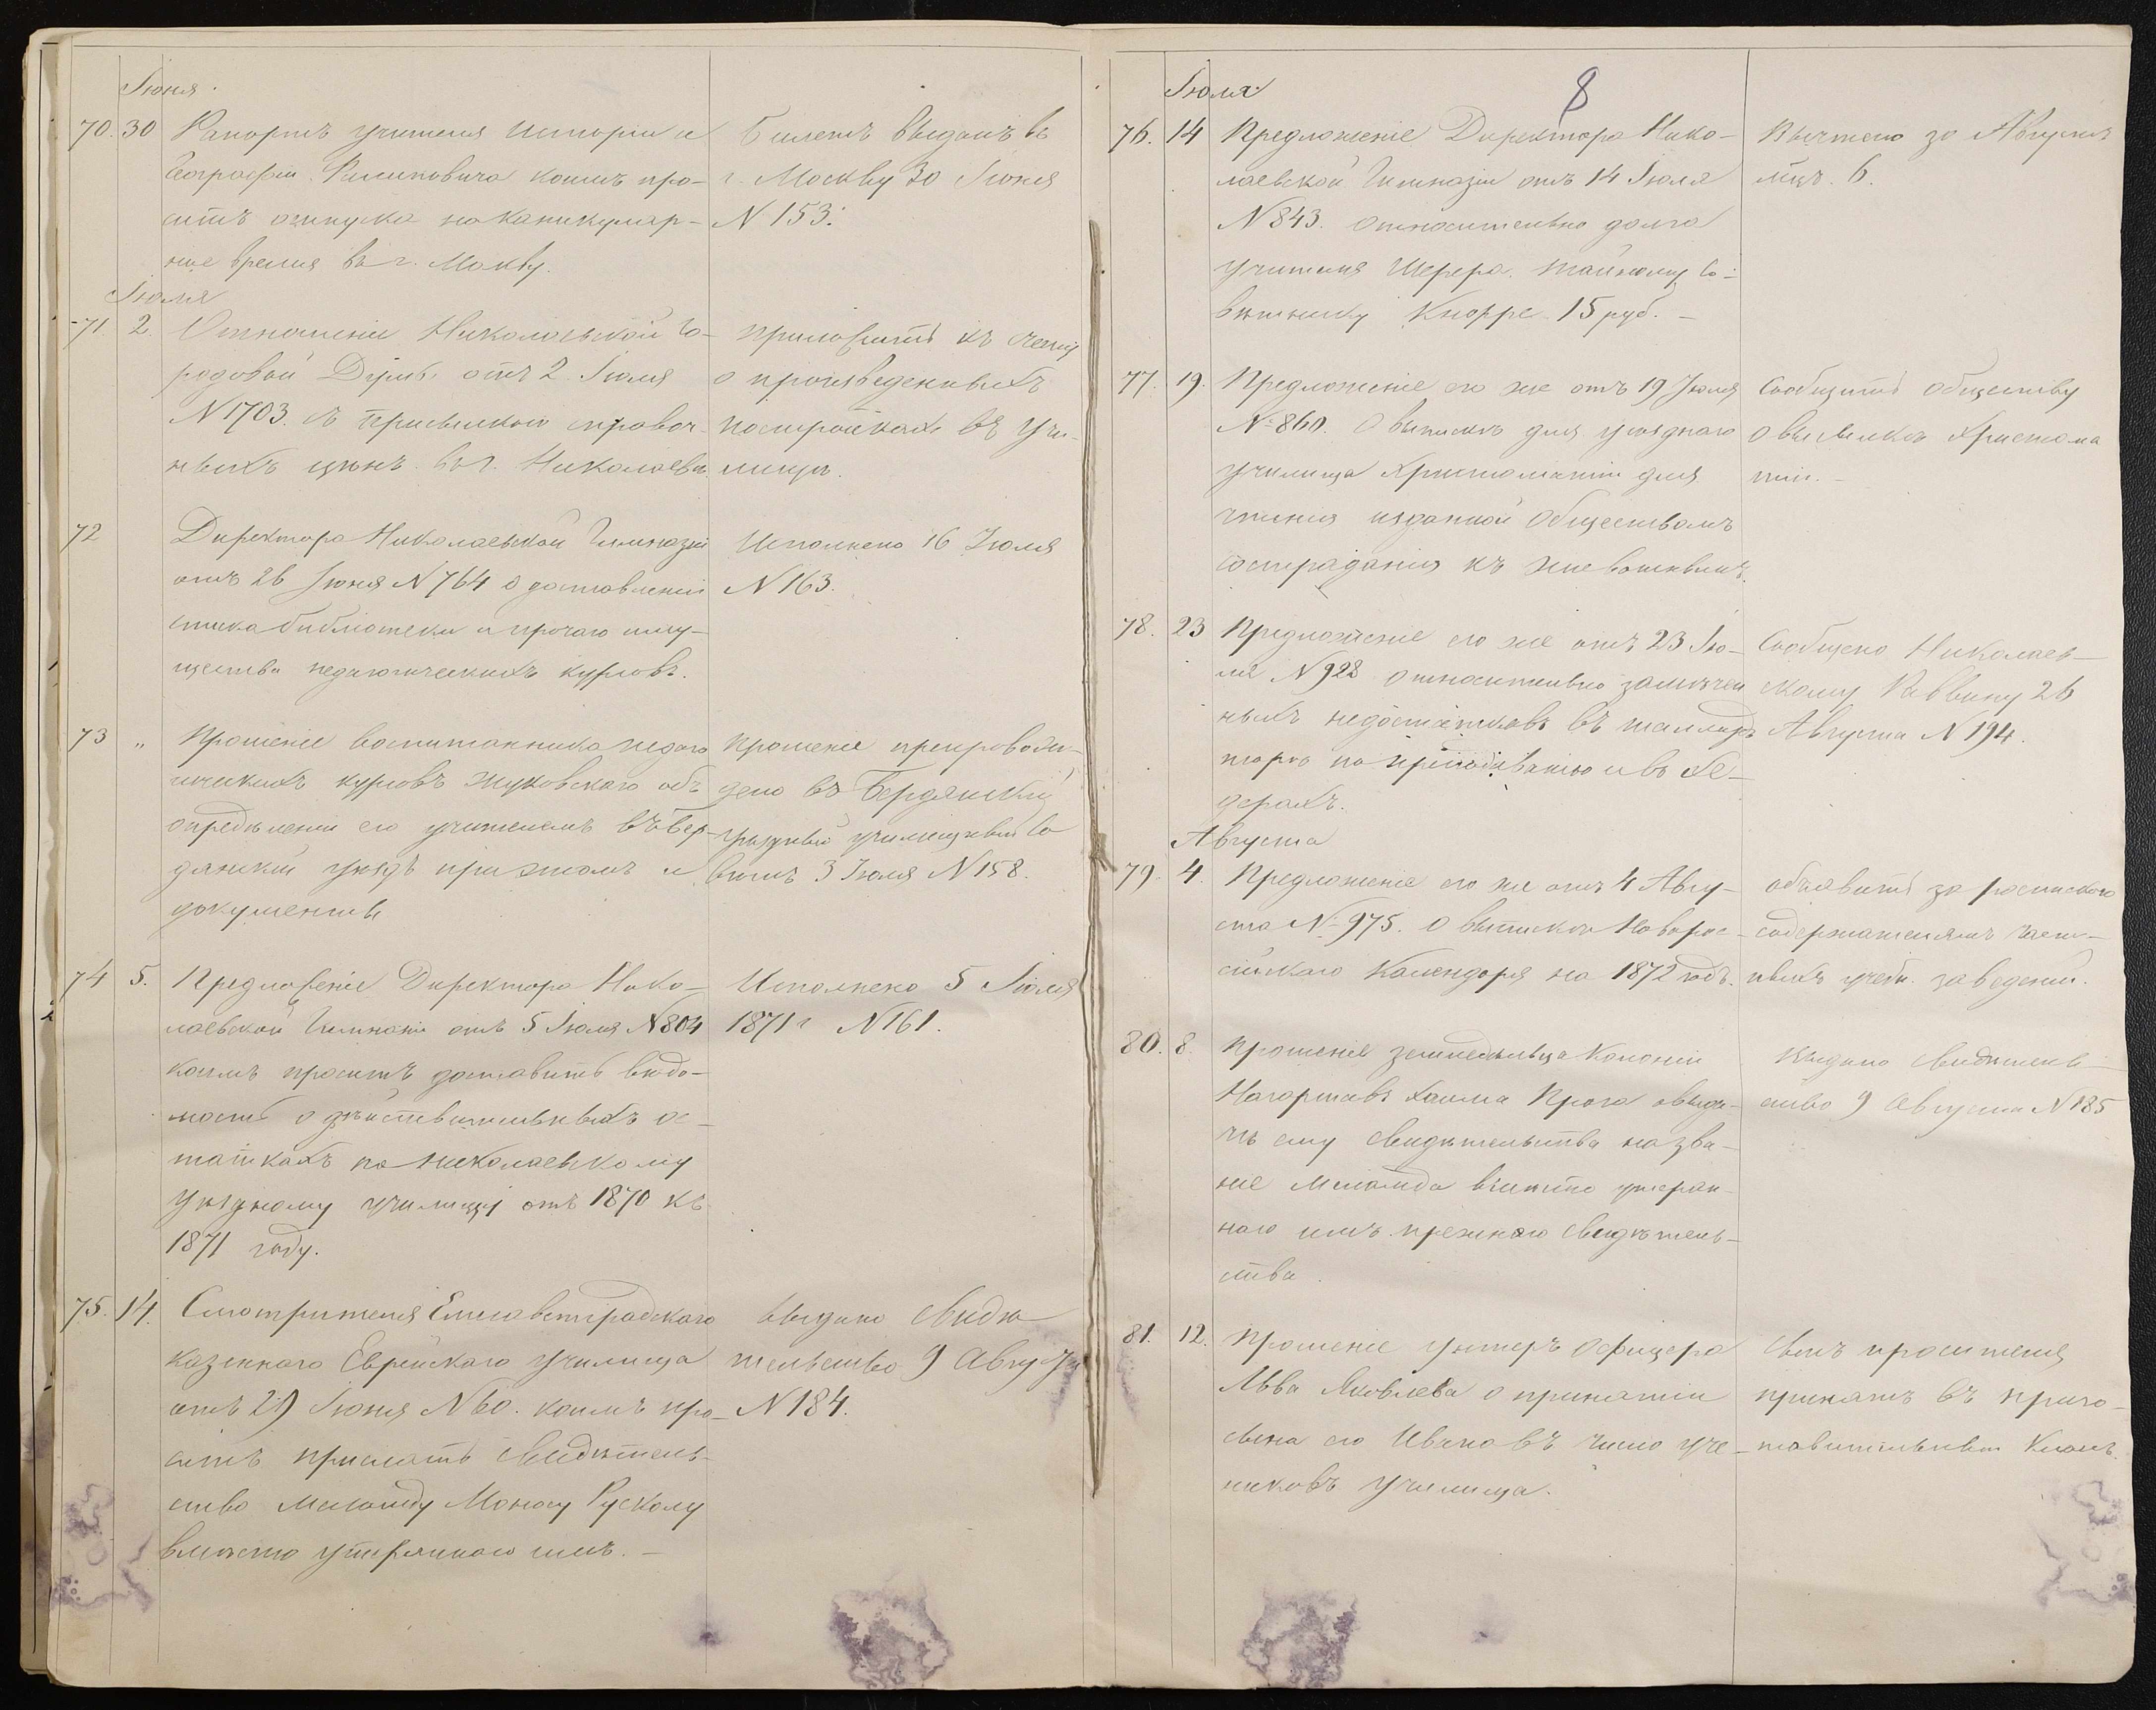 Іюня.
70. 30 Рапортъ учителя исторіи и
географіи Филиповича коимъ про-
ситъ отпуска на каникуляр-
ное время въ г. Мокву.
Билетъ выданъ въ
г. Москву 30 Іюня
N 153.
Іюля
71. 2. Отношеніе Николаевской Го-
родовой Думы отъ 2 Іюля
N 1703. съ присылкою справоч-
ныхъ цѣнъ въ г. Николаевѣ.
Приложить къ делу
о произведенныхъ
постройкахъ въ учи-
лищѣ.
72 Директора Николаевской Гимназіи
отъ 26 Іюня N 764 о доставленіи
списка библіотеки и прочаго иму-
щества педагогическихъ курсовъ.
Исполнено 16 Іюля
N 163.
73 " Прошеніе воспитанника педаго
гическихъ курсовъ Жуковскаго объ
опредѣленіи его учителемъ въ Бер-
дянскій уѣздъ при этомъ и
документы
Прошеніе препровож-
дено въ Бердянскій
уѣздный училищный Со
вѣтъ 3 Іюля N 158.
74 5. Предложеніе Директора Нико-
лаевской Гимназіи отъ 5 Іюля N 804
коимъ проситъ доставить вѣдо-
мость о дѣйствительныхъ ос-
таткахъ по Николаевскому
уѣздному училищу отъ 1870 къ
1871 году.
Исполнено 5 Іюля
1871 г N 161.
75. 14. Смотрителя Елисаветградскаго
казеннаго Еврейскаго училища
отъ 29 Іюня N 60. коимъ про-
ситъ прислать свидѣтель-
ство Меламду Моносу Рускому
вмѣсто утеряннаго имъ. —
Выдано свидѣ
тельство 9 Августа
N 184.
8
Іюля
76. 14 Предложеніе Директора Нико-
лаевской Гимназіи отъ 14 Іюля
N 843. Относительно долга
учителя Шерера тайному Со-
вѣтнику Кнорре 15 руб. —
Вычтено за Августъ
мцъ. 6.
77. 19. Предложеніе его же отъ 19 Іюля
N 860. О выпискѣ для уѣзднаго
училища Христоматіи для
чтенія изданной Обществомъ
состраданія къ животнымъ.
Сообщить обществу
о высылкѣ Христома
тіи. —
78. 23 Предложеніе его же отъ 23 Ію-
ля N 928 относительно замѣчен
ныхъ недостатковъ въ талмудъ
торѣ по преподаванію и въ хе-
дерахъ.
Сообщено Николаев-
скому Раввину 26
Августа N 194.
Августа
79. 4. Предложеніе его же отъ 4 Авгу-
ста N 975. О выпискѣ Новорос-
сійскаго Календаря на 1872 годъ.
объявить за роспискою
содержателямъ част-
ныхъ учебн. заведеній.
80. 8. Прошеніе земледѣльца Колоніи
Нагартавъ Хаима Прога о выда-
чѣ ему свидѣтельства на зва-
ніе Меламда вмѣсто утерян-
наго имъ прежняго свидѣтель-
ства.
Выдано свидѣтель-
ство 9 Августа N 185
81. 12. Прошеніе унтеръ офицера
Льва Яковлева о принятіи
сына его Ивана въ число уче-
никовъ училища.
сынъ просителя
принятъ въ приго-
товительный классъ.